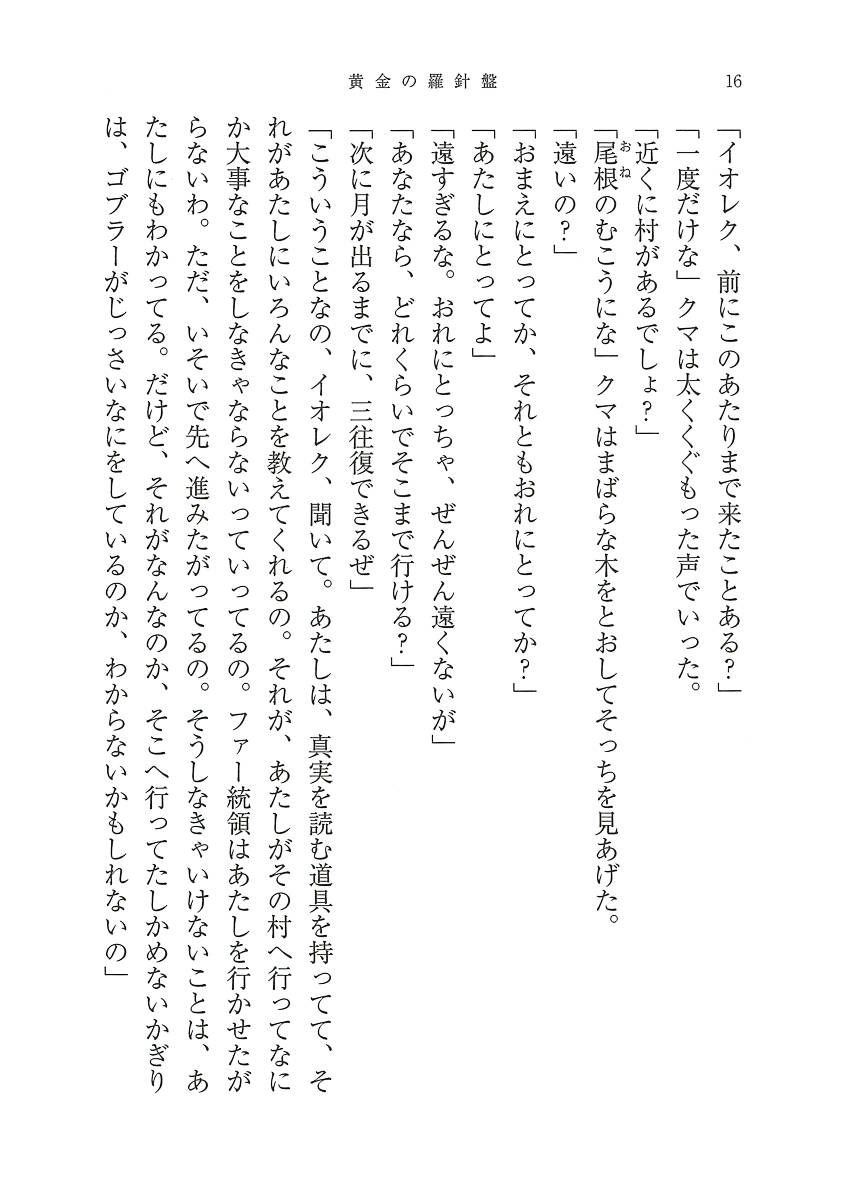 黄金の羅針盤
16
「イオレク、前にこのあたりまで来たことある?」
「一度だけな」クマは太くくぐもった声でいった。
「近くに村があるでしょ?」
「尾根のむこうにな」クマはまばらな木をとおしてそっちを見あげた。
おね
「遠いの?」
「おまえにとってか、それともおれにとってか?」
「あたしにとってよ」
「遠すぎるな。おれにとっちゃ、ぜんぜん遠くないが」
「あなたなら、どれくらいでそこまで行ける?」
「次に月が出るまでに、三往復できるぜ」
「こういうことなの、イオレク、聞いて。あたしは、真実を読む道具を持ってて、そ
れがあたしにいろんなことを教えてくれるの。それが、あたしがその村へ行ってなに
か大事なことをしなきゃならないっていってるの。ファー統領はあたしを行かせたが
らないわ。ただ、いそいで先へ進みたがってるの。そうしなきゃいけないことは、あ
たしにもわかってる。だけど、それがなんなのか、そこへ行ってたしかめないかぎり
は、ゴブラーがじっさいなにをしているのか、わからないかもしれないの」